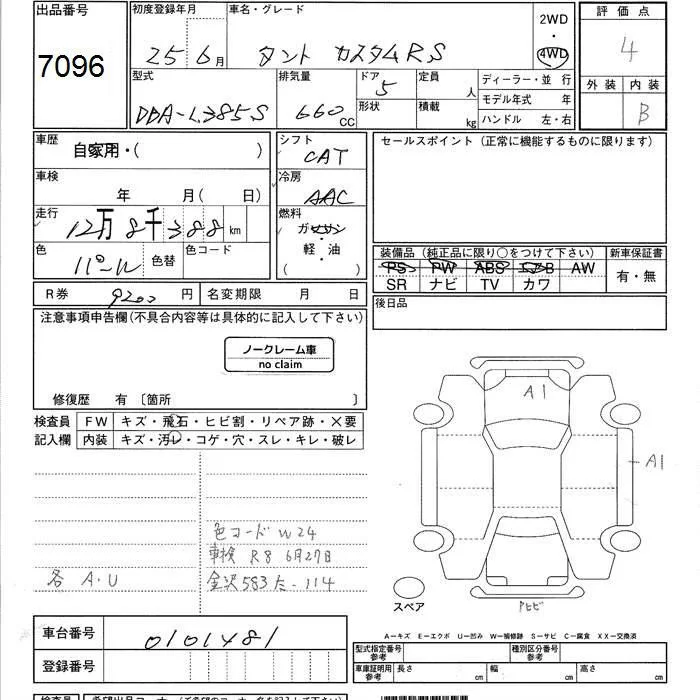 出品番号 7096
初度登録年月 25 6月
車名・グレード タント カスタムRS
2WD
4WD
評価点 4
外装 内装 B
型式 DBA-L385S
排気量 660 CC
ドア 5
形状
定員 人
積載 kg
ディーラー・並行
モデル年式 年
ハンドル 左・右
車歴 自家用・( )
シフト CAT
セールスポイント(正常に機能するものに限ります)
車検 年 月(日)
冷房 AAC
走行 12万8千388km
燃料 ガソリン 軽・油 ( )
色 パール 色替 色コード
装備品(純正品に限り○をつけて下さい) 新車保証書
PS PW ABS エアB AW 有・無
SR ナビ TV カワ
R券 9200円 名変期限 月 日
後日品
注意事項申告欄(不具合内容等は具体的に記入して下さい)
ノークレーム車
no claim
修復歴 有〔箇所 〕
検査員 FW キズ・飛石・ヒビ割・リペア跡・×要
記入欄 内装 キズ・汚レ・コゲ・穴・スレ・キレ・破レ
A1
A1
色コード W24
車検 R8 6月27日
各 A.U 金沢583た-114
スペア
アヒビ
車台番号 0101481
登録番号
A−キズ E−エクボ U−凹み W−補修跡 S−サビ C−腐食 XX−交換済
型式指定番号 参考 種別区分番号 参考
車庫証明用 参考 長さ cm 幅 cm 高さ cm